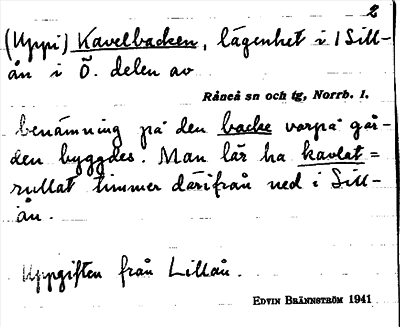 2
(Uppi) Kavelbacken, lägenhet i Sill-
ån i Ö. delen av
Råneå sn och tg, Norrb. l.
benämning på den backe varpå går-
den byggdes. Man lär ha kavlat =
rullat timmer därifrån ned i Sill-
ån.
Uppgiften från Lillån.
EDVIN BRÄNNSTRÖM 1941